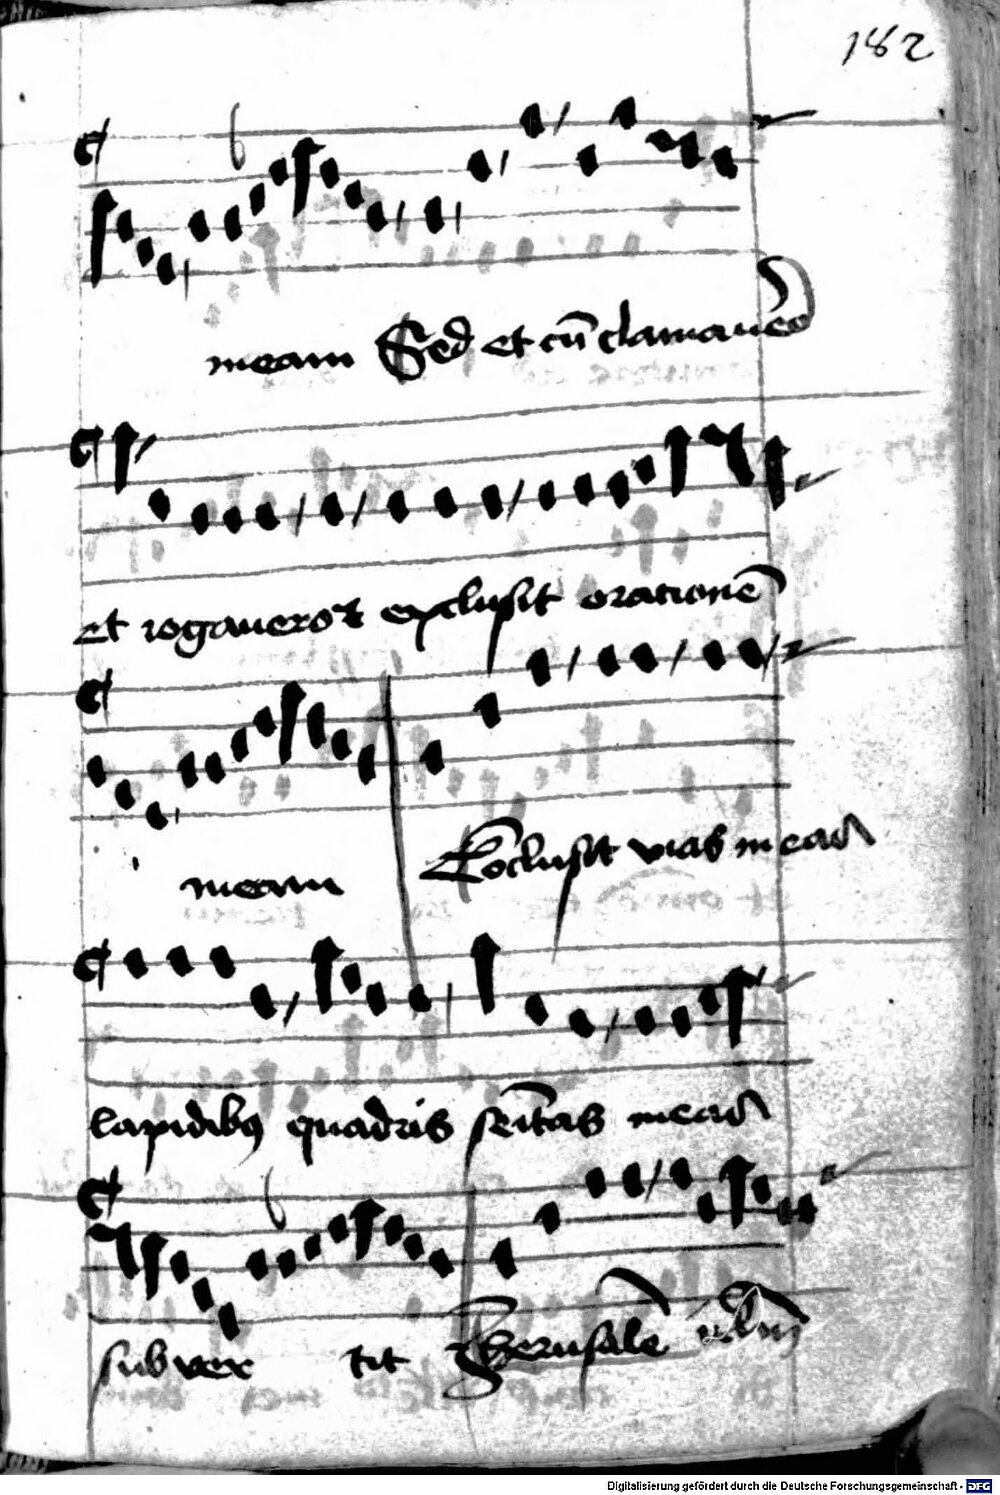 182
meam Sed et cū clamaue᷑o
et rogauero⁊ exclusit oracionē
meam Cōclusit vias meas
lapidibꝯ quadris semitas meas
subver tit Jherusalē
Digitalisierung gefördert durch die Deutsche Forschungsgemeinschaft - DFG